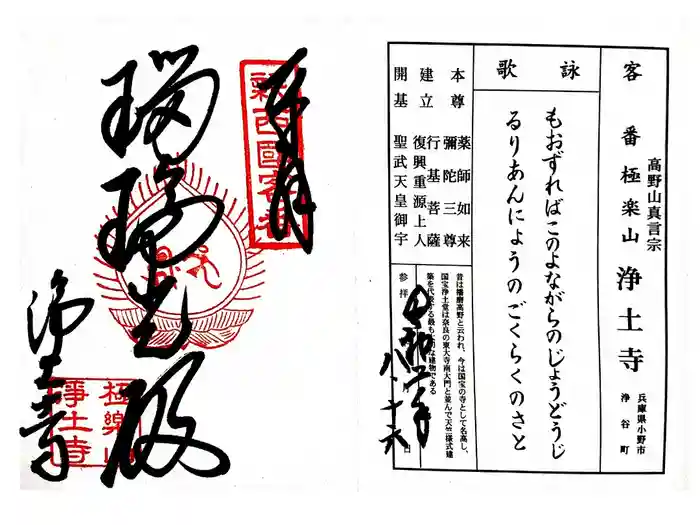 奉拝
瑠璃光殿
浄土寺
新西國客番
極樂山
淨土寺
客番 極楽山 浄土寺
高野山真言宗
兵庫県小野市
浄谷町
詠歌
もおずればこのよながらのじょうどうじ
るりあんにょうのごくらくのさと
本尊 薬師如来
彌陀三尊
建立 行基菩薩
復興重源上人
開基 聖武天皇御宇
昔は播磨高野と云われ、今は国宝の寺として名高し、
国宝浄土堂は奈良の東大寺南大門と並んで天竺様式建
築を代表する最も大切な建物である
参拝
令和二年
八、十六
日